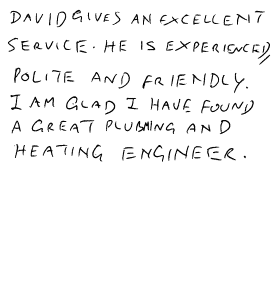 DAVID GIVES AN EXCELLENT
SERVICE. HE IS EXPERIENCED,
POLITE AND FRIENDLY.
I AM GLAD I HAVE FOUND
A GREAT PLUMBING AND
HEATING ENGINEER.